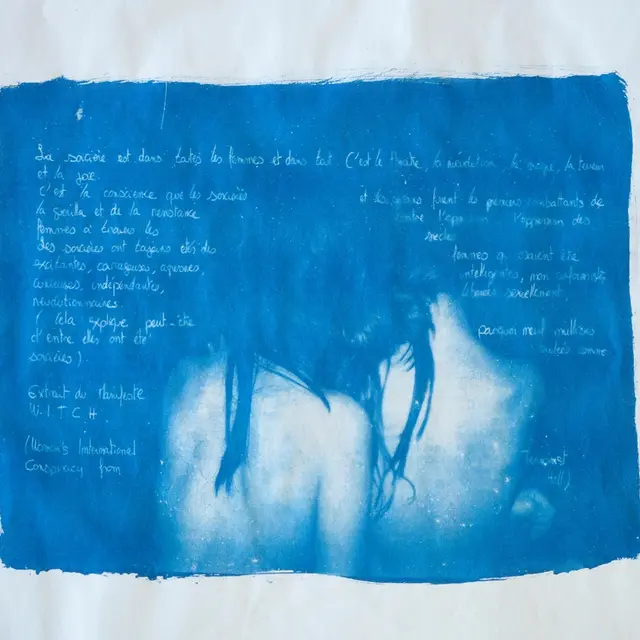 La sorcière est dans toutes les femmes et dans tout C'est le théatre, la révolution, la magie, la terreur
et la joie.
C'est la conscience que les sorcières et des gitans furent les premiers combattants de
la guerilla et de la résistance contre l'oppression l'oppression des
femmes a travers les siècles
des sorcières ont toujours étés des femmes qui osaient être
excitantes, courageuses, agressives, intelligentes, non conformistes
curieuses, indépendantes, libérées sexuellement,
révolutionnaires.
( Cela explique peut-être pourquoi neuf millions
d'entre elles ont été brûlées comme
sorcières ).
Extrait du Manifeste
W.I T C H.
(Women's International Terrorist
Conspiracy from Hell)